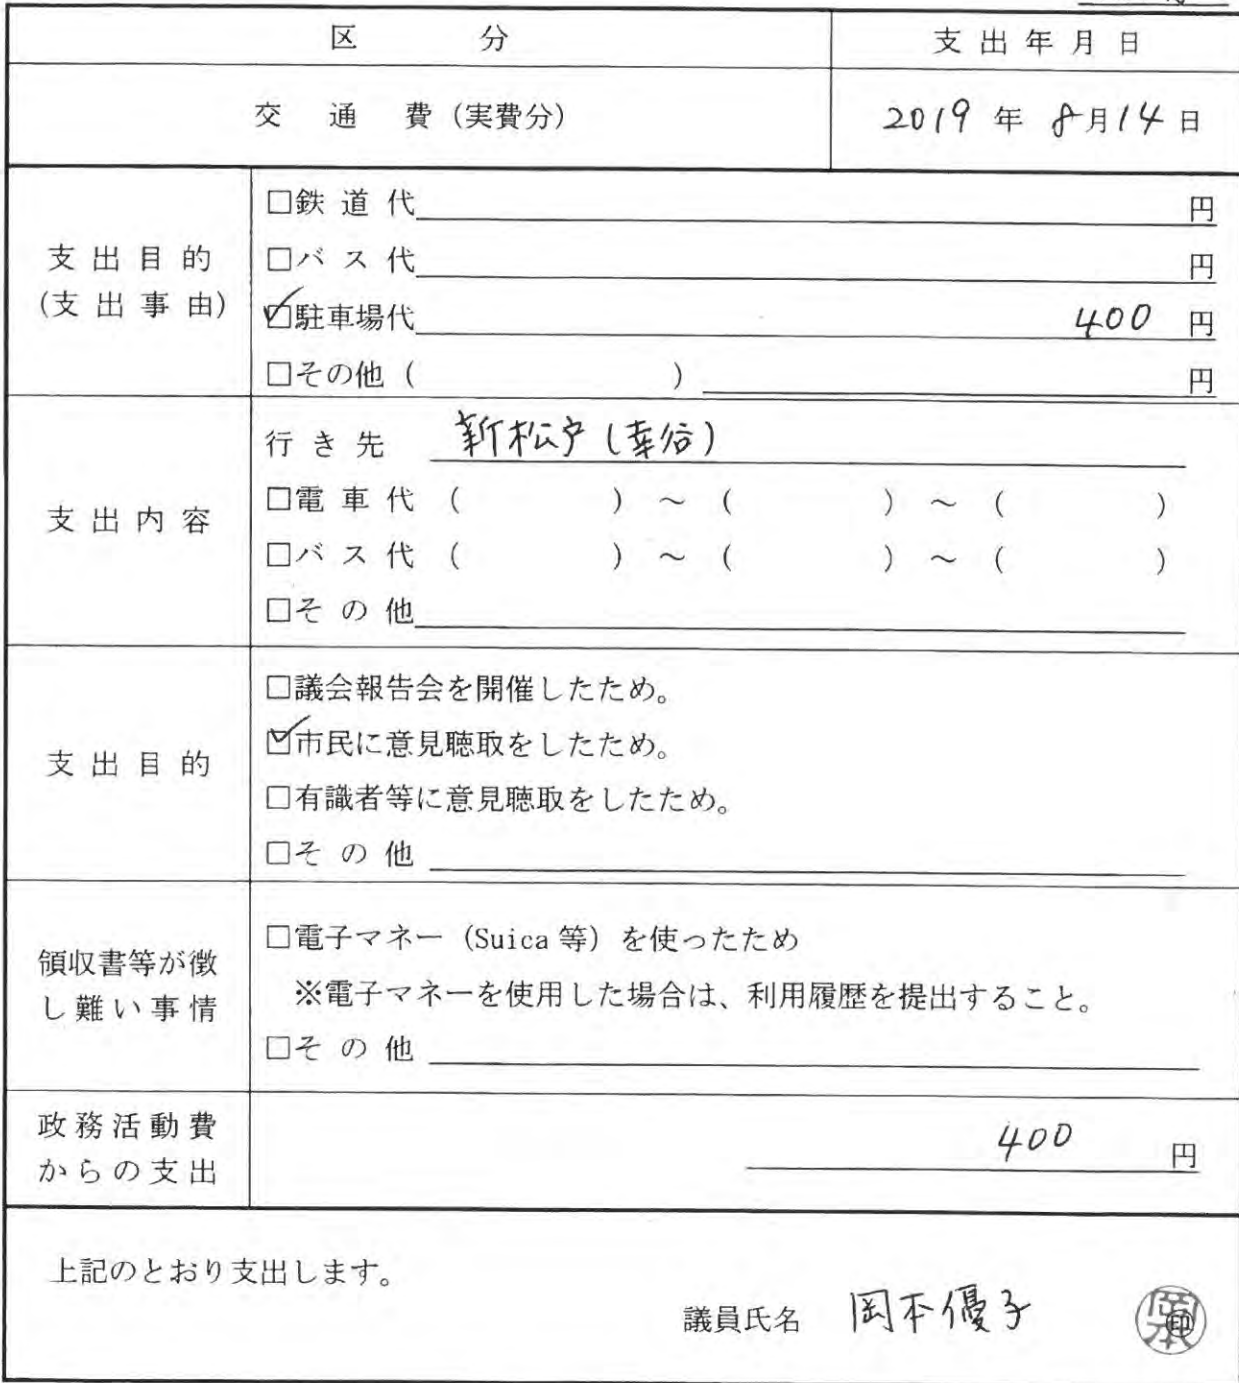 区 分 支出年月日
交 通 費 (実費分) 2019 年 8月14日
支出目的
(支出事由)
□鉄道代 円
□バス代 円
☑駐車場代 400 円
□その他 ( ) 円
支出内容
行き先 新松戸(幸谷)
□電車代 ( ) ～ ( ) ～ ( )
□バス代 ( ) ～ ( ) ～ ( )
□その他
支出目的
□議会報告会を開催したため。
☑市民に意見聴取をしたため。
□有識者等に意見聴取をしたため。
□その他
領収書等が徴
し難い事情
□電子マネー (Suica 等) を使ったため
※電子マネーを使用した場合は、利用履歴を提出すること。
□その他
政務活動費
からの支出
400 円
上記のとおり支出します。
議員氏名 岡本優子 印
岡本